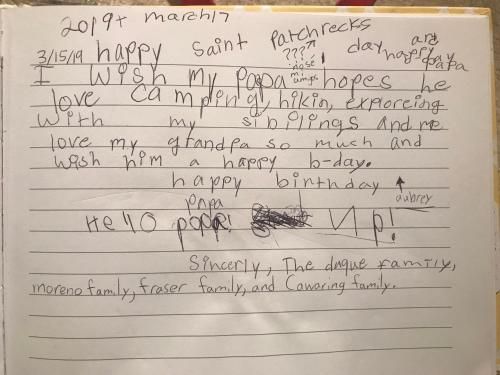 2019+ march 17
happy saint patchrecks day and
????
happy papa
3/15/19
I wish my papa hopes he
love camping, hikin, exploreing
with my sibilings and me
love my grandpa so much and
wish him a happy b-day.
happy birthday
aubrey
papa
Hello papa! Up!
Sincerly, The duque family,
moreno family, fraser family, and Cawaring family.